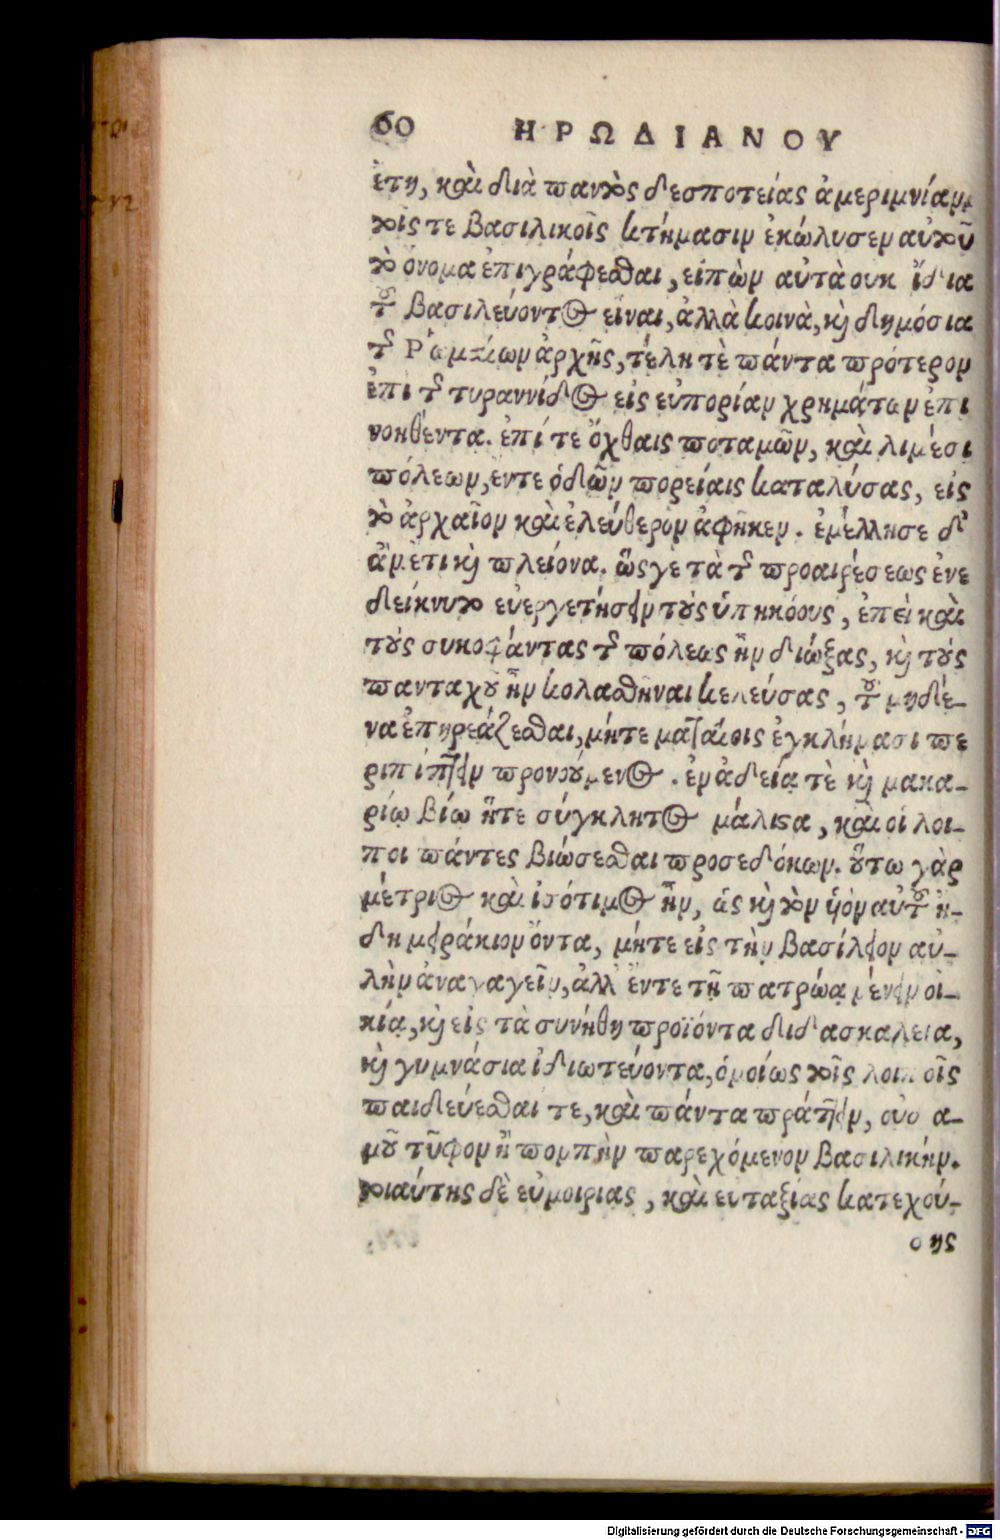 60 ΗΡΩΔΙΑΝΟΥ
ἔτη, καὶ διὰ παντὸς δεσποτείας ἀμεριμνίαν.
τοῖς τε βασιλικοῖς κτήμασιν ἐκώλυσεν αὐτοῦ
τὸ ὄνομα ἐπιγράφεσθαι, εἰπὼν αὐτὰ ουκ ἴδια
τοῦ βασιλεύοντος εἶναι, ἀλλὰ κοινὰ, καὶ δημόσια
τῆς Ῥωμαίων ἀρχῆς, τέλη τὲ πάντα πρότερον
ἐπὶ τῆς τυραννίδος εἰς εὐπορίαν χρημάτων ἐπι
νοηθέντα. ἐπί τε ὄχθαις ποταμῶν, καὶ λιμέσι
πόλεων, ἔντε ὁδῶν πορείαις καταλύσας, εἰς
τὸ ἀρχαῖον καὶ ἐλεύθερον ἀφῆκεν. ἐμέλλησε δ'
ἂν ἔτι καὶ πλείονα. ὥς γε τὰ τῆς προαιρέσεως ἐνε
δείκνυτο εὐεργετήσειν τοὺς ὑπηκόους, ἐπεὶ καὶ
τοὺς συκοφάντας τῆς πόλεως ἦν διώξας, καὶ τοὺς
πανταχοῦ ἦν κολασθῆναι κελεύσας, τοῦ μηδέ-
να ἐπηρεάζεσθαι, μήτε ματαίοις ἐγκλήμασι πε
ριπίπτειν προνοούμενος. ἐν ἀδείᾳ τὲ καὶ μακα-
ρίῳ βίῳ ἥτε σύγκλητος μάλιστα, καὶ οἱ λοι-
ποι πάντες βιώσεσθαι προσεδόκων. οὕτω γὰρ
μέτριος καὶ ἰσότιμος ἦν, ὡς καὶ τὸν υἱὸν αὐτοῦ ἤ-
δη μειράκιον ὄντα, μήτε εἰς τὴν βασίλειον αὐ-
λὴν ἀναγαγεῖν, ἀλλ' ἔντε τῇ πατρῴᾳ μένειν οἰ-
κίᾳ, καὶ εἰς τὰ συνήθη προϊόντα διδασκαλεια,
καὶ γυμνάσια ἰδιωτεύοντα, ὁμοίως τοῖς λοιποῖς
παιδεύεσθαι τε, καὶ πάντα πράττειν, οὐδ α-
μοῦ τῦφον ἢ πομπὴν παρεχόμενον βασιλικήν.
τοιαύτης δὲ εὐμοιριας, καὶ ευταξίας κατεχού-
σης
Digitalisierung gefördert durch die Deutsche Forschungsgemeinschaft - DFG